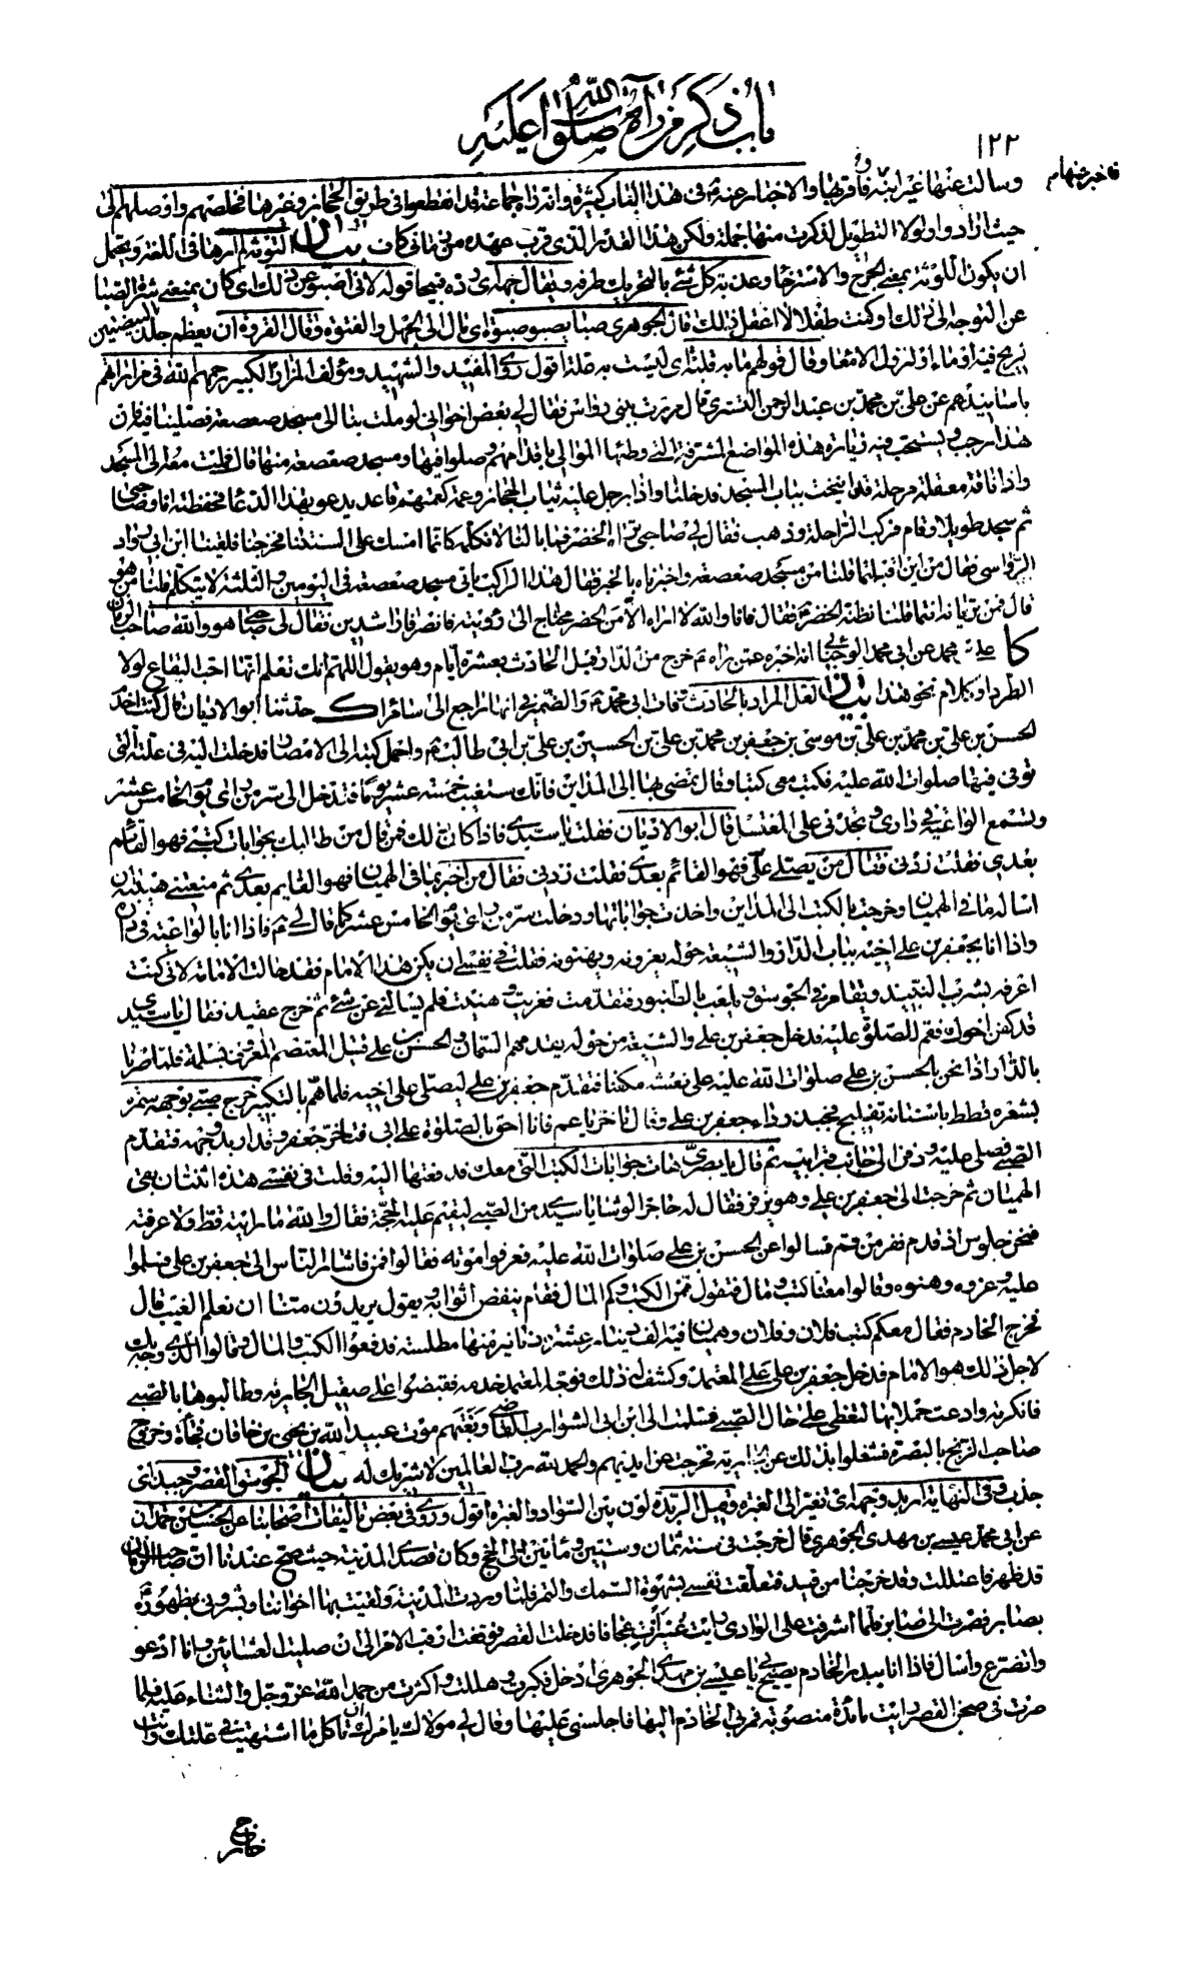 باب ذكر من رآه صلوات الله عليه
١٢٢
وسالت عنها غير ابنه فاقر بها والاخبار عنه ع فى هذا الباب كثيرة وانه راه جماعة قد انقطعوا فى طريق الحجاز وغيرها فخلصهم واوصلهم الى
حيث ارادوا ولولا التطويل لذكرت منها جملة ولكن هذا القدر الذى قرب عهده من زمانى كاف بيان التوثة لم ارها فى اللغة ويحتمل
ان يكون اللوثة بمعنى الجرح والاسترخاء وعذبة كل شئ بالتحريك طرفه ويقال جملى رده قبيحا قوله لانى اصبو عن ذلك اى كان يمنعنى شرة الصبا
عن التوجه الى ذلك او كنت طفلا لا اعقل ذلك قال الجوهرى صبا يصبو صبوة اى مال الى الجهل والفتوة وقال الفروة ان يعظم جلد البيضتين
لريح فيه او ماء او لنزول الامعاء وقال قولهم ما به قلبة اى ليست به علة اقول روى المفيد والشهيد ومؤلف المزار الكبير رحمهم الله فى مزاراتهم
باسانيدهم عن على بن محمد بن عبد الرحمن التسترى قال مررت ببنى رواس فقال لى بعض اخوانى لو ملت بنا الى مسجد صعصعة فصلينا فيه فان
هذا رجب ويستحب فيه زيارة هذه المواضع المشرفة التى وطئها الموالى باقدامهم وصلوا فيها ومسجد صعصعة منها قال فملت معه الى المسجد
واذا ناقة معقلة مرحلة قد انيخت بباب المسجد فدخلنا واذا برجل عليه ثياب الحجاز وعمة كعمتهم قاعد يدعو بهذا الدعاء فحفظته انا وصاحبى
ثم سجد طويلا وقام فركب الراحلة وذهب فقال لى صاحبى تراه الخضر فما بالنا لا نكلمه كانما امسك على السنتنا فخرجنا فلقينا ابن ابى رواد
الرواسى فقال من اين اقبلتما قلنا من مسجد صعصعة واخبرناه بالخبر فقال هذا الراكب ياتى مسجد صعصعة فى اليومين والثلثة لا يتكلم قلنا من هو
قال فمن تريانه انتما قلنا نظنه الخضر ع فقال فانا والله لا اراه الا من الخضر محتاج الى رؤيته فانصرفا راشدين فقال لى صاحبى هو والله صاحب الزمان
كا على بن محمد عن ابى محمد الوجنائى انه اخبره عمن راه ع خرج من الدار قبل الحادث بعشرة ايام وهو يقول اللهم انك تعلم انها احب البقاع لولا
الطرد او كلام نحو هذا بيان لعل المراد بالحادث وفات ابى محمد ع والضمير فى انها راجع الى سامراء ك حدثنا ابو الاديان قال كنت اخدم
الحسن بن على بن محمد بن على بن موسى بن جعفر بن محمد بن على بن الحسين بن على بن ابى طالب ع واحمل كتبه الى الامصار فدخلت اليه فى علته التى
توفى فيها صلوات الله عليه فكتب معى كتبا وقال تمضى بها الى المداين فانك ستغيب خمسة عشر يوما فتدخل الى سر من راى يوم الخامس عشر
وتسمع الواعية فى دارى وتجدنى على المغتسل قال ابو الاديان فقلت يا سيدى فاذا كان ذلك فمن قال من طالبك بجوابات كتبى فهو القائم
بعدى فقلت زدنى فقال من يصلى على فهو القائم بعدى فقلت زدنى فقال من اخبر بما فى الهميان فهو القايم بعدى ثم منعتنى هيبته ان
اساله ما فى الهميان وخرجت بالكتب الى المداين واخذت جواباتها ودخلت سر من راى يوم الخامس عشر كما قال لى ع فاذا انا بالواعية فى داره
واذا انا بجعفر بن على اخيه بباب الدار والشيعة حوله يعزونه ويهنئونه فقلت فى نفسى ان يكن هذا الامام فقد حالت الامامة لانى كنت
اعرفه بشرب النبيذ ويقامر فى الجوسق ويلعب بالطنبور فتقدمت فعزيت وهنيت فلم يسالنى عن شئ ثم خرج عقيد فقال يا سيدى
قد كفن اخوك فقم للصلوة عليه فدخل جعفر بن على والشيعة من حوله يقدمهم السمان والحسن بن على قتيل المعتصم المعروف بسلمة فلما صرنا
بالدار اذا نحن بالحسن بن على صلوات الله عليه على نعشه مكفنا فتقدم جعفر بن على ليصلى على اخيه فلما هم بالتكبير خرج صبى بوجهه سمرة
بشعره قطط باسنانه تفليج فجبذ رداء جعفر بن على وقال تاخر يا عم فانا احق بالصلوة على ابى فتاخر جعفر وقد اربد وجهه فتقدم
الصبى فصلى عليه ودفن الى جانب قبر ابيه ثم قال يا بصرى هات جوابات الكتب التى معك فدفعتها اليه وقلت فى نفسى هذه اثنتان بقى
الهميان ثم خرجت الى جعفر بن على وهو يزفر فقال له حاجز الوشا يا سيدى من الصبى ليقيم عليه الحجة فقال والله ما رايته قط ولا عرفته
فنحن جلوس اذ قدم نفر من قم فسالوا عن الحسن بن على صلوات الله عليه فعرفوا موته فقالوا فمن فاشار الناس الى جعفر بن على فسلموا
عليه وعزوه وهنوه وقالوا معنا كتب ومال فتقول ممن الكتب وكم المال فقام ينفض اثوابه ويقول يريدون منا ان نعلم الغيب قال
فخرج الخادم فقال معكم كتب فلان وفلان وهميان فيه الف دينار عشرة دنانير منها مطلسة فدفعوا الكتب والمال وقالوا الذى وجه بك
لاجل ذلك هو الامام فدخل جعفر بن على على المعتمد وكشف له ذلك فوجه المعتمد خدمه فقبضوا على صقيل الجارية وطالبوها بالصبى
فانكرته وادعت حملا بها لتغطى على حال الصبى فسلمت الى ابن ابى الشوارب القاضى وبغتهم موت عبيد الله بن يحيى بن خاقان فجاة وخروج
صاحب الزنج بالبصرة فشغلوا بذلك عن الجارية فخرجت عن ايديهم والحمد لله رب العالمين لا شريك له بيان الجوسق القصر وجبذ اى
جذب وفى النهاية اربد وجهه اى تغير الى الغبرة وقيل الربدة لون بين السواد والغبرة اقول وروى فى بعض تاليفات اصحابنا عن الحسين بن حمدان
عن ابى محمد عيسى بن مهدى الجوهرى قال خرجت فى سنة ثمان وستين ومائتين الى الحج وكان قصدى المدينة حيث صح عندنا ان صاحب الزمان
قد ظهر فاعتللت وقد خرجنا من فيد فتعلقت نفسى بشهوة السمك والتمر فلما وردت المدينة ولقيت بها اخواننا وبشرونى بظهوره ع
بصابر فصرت الى صابر فلما اشرفت على الوادى رايت عنيزات عجافا فدخلت القصر فوقفت ارقب الامر الى ان صليت العشائين وانا ادعو
واتضرع واسال فاذا انا ببدر الخادم يصيح بى يا عيسى بن مهدى الجوهرى ادخل فكبرت وهللت واكثرت من حمد الله عز وجل والثناء عليه فلما
صرت فى صحن القصر رايت مائدة منصوبة فمر بى الخادم اليها فاجلسنى عليها وقال لى مولاك يامرك ان تاكل ما اشتهيت فى علتك وانت
خارج